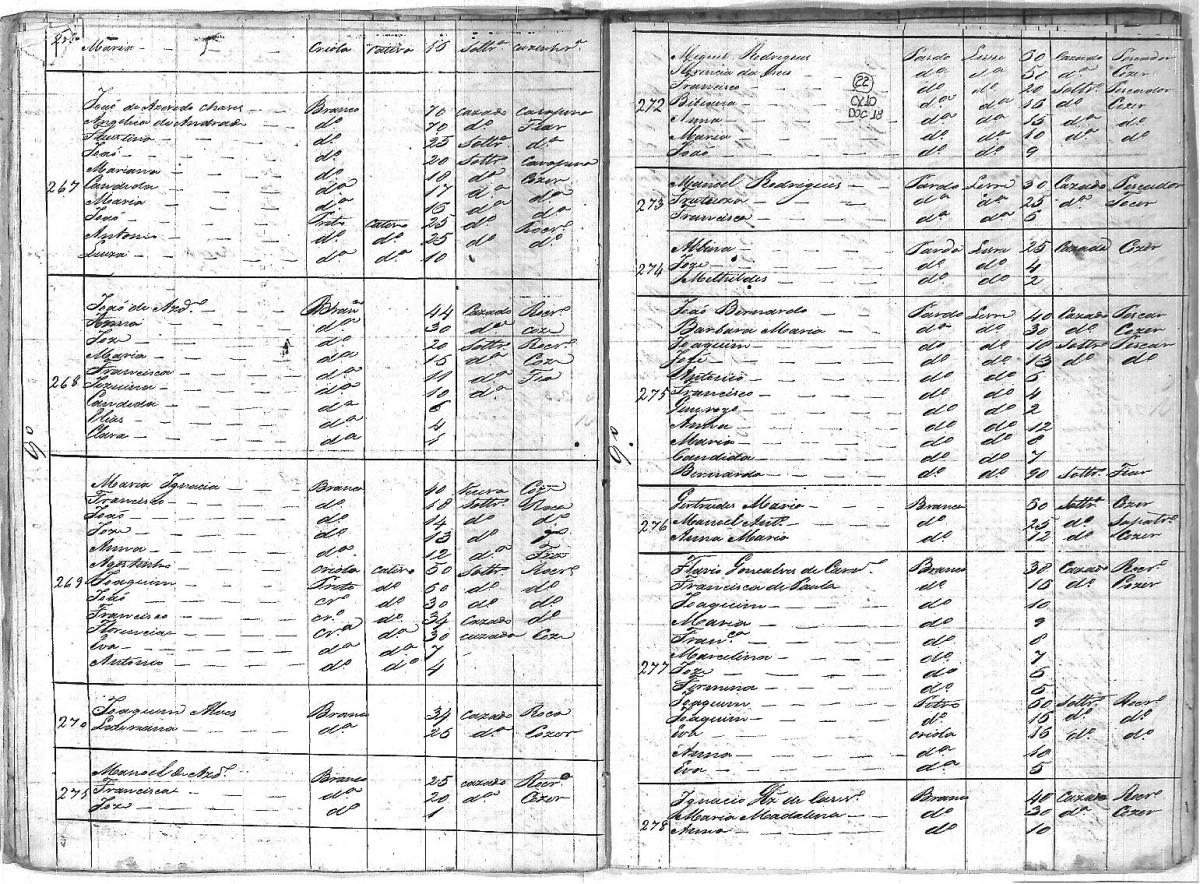 Maria - Criola Cativo 15 Soltrª Cozinhrª
João de Azevedo Chaves Branco 70 Cazado Carapina
Angelica de Andrade dº 70 dº Fiar
dº 25 Soltrº dª
João - dº 20 Soltrº Carapina
Marianna - dº 18 dª Cozer
267 Candida - dª 17 dª dª
Maria - dª 15 dª dª
João - Preto Cativo 25 dº Rocrº
Antonio - dº dº 25 dº dº
Luiza - dª dª 10
João de Azdº Branº 44 Cazado Rocrº
Anna - dª 30 dª Coze
Joze - dº 20 Soltrº Rocrº
Maria - dª 15 dª Coze
Francisca - dª 11 dª Fia
268 dª 10 dª
Candida - dª 6
Elias - dª 4
Clara - dª 1
Maria Ignacia - Branca 40 Viuva Coze
Francisco - dº 18 Soltrº Roca
João - dº 14 dº dº
Joze - dº 13 dº
Anna - dª 12 dª
criolo cativo 50 Soltrº Rocrº
269 Joaquim - Preto dº 60 dº dº
João - crº dº 30 dº dº
Francisco - crº dº 34 Cazado dº
Florencia - crª dª 30 cazada Coze
Eva - dª dª 7
Antonio - dº dº 4
270 Joaquim Alves Branco 34 Cazado Roca
dª 25 dª Cozer
Manoel de Azdº Branco 25 cazado Rocrº
275 Francisca - dª 20 dª Cozer
Joze - dº 1
9º
Miguel Rodrigues Pardo Livre 60 Cazado Pescador
dª dª 51 dª Cozer
Francisco dº dº 20 Soltrº Pescador
22
CX 10
DOC 18
272 dª dª 15 dº Cozer
Anna - dª dª 15 dª dº
Maria - dº dº 10 dº dº
João - dº dº 9
Manoel Rodrigues - Pardo Livre 30 Cazado Pescador
273 dª dª 25 dª
Francisca - dª dª 5
Albina - Parda Livre 25 Cazada Cozer
274 Joze - dº dº 4
dº dº 2
João Bernardo - Pardo Livre 40 Cazado Pescar
Barbara Maria - dª dº 30 dº Cozer
Joaquim - dº dº 10 Soltrº Pescar
José - dº dº 13 dº dº
Antonio - dº dº 5
275 Francisco - dº dº 4
dº dº 2
Anna - dº dº 12
Maria - dº dº 8
Candida - dº dº 7
Bernarda - dº dº 90 Soltrº Fiar
Gertrudes Maria - Branca 50 Soltrª Cozer
276 Manoel Antº - dº 25 dº Sapatrº
Anna Maria dº 12 dº Cozer
Flavio Gonsalves de Carvº Branco 38 Cazado Rocrº
Francisca de Paula dº 15 dº Cozer
Joaquim - dº 10
Maria - dº 9
Franca - dº 8
Marcelina - dº 7
277 Joze - dº 6
Firmina - dº 5
Joaquim - Preto 60 Soltrº Rocrº
Joaquim - dº 15 dº dº
Eva - criola 16 dº dº
Anna - dª 10
Eva - dª 5
Ignacio Frz de Carvº Branco 40 Cazado Rocrº
Maria Madalena - dº 30 dª Cozer
278 Anna - dº 10
9º